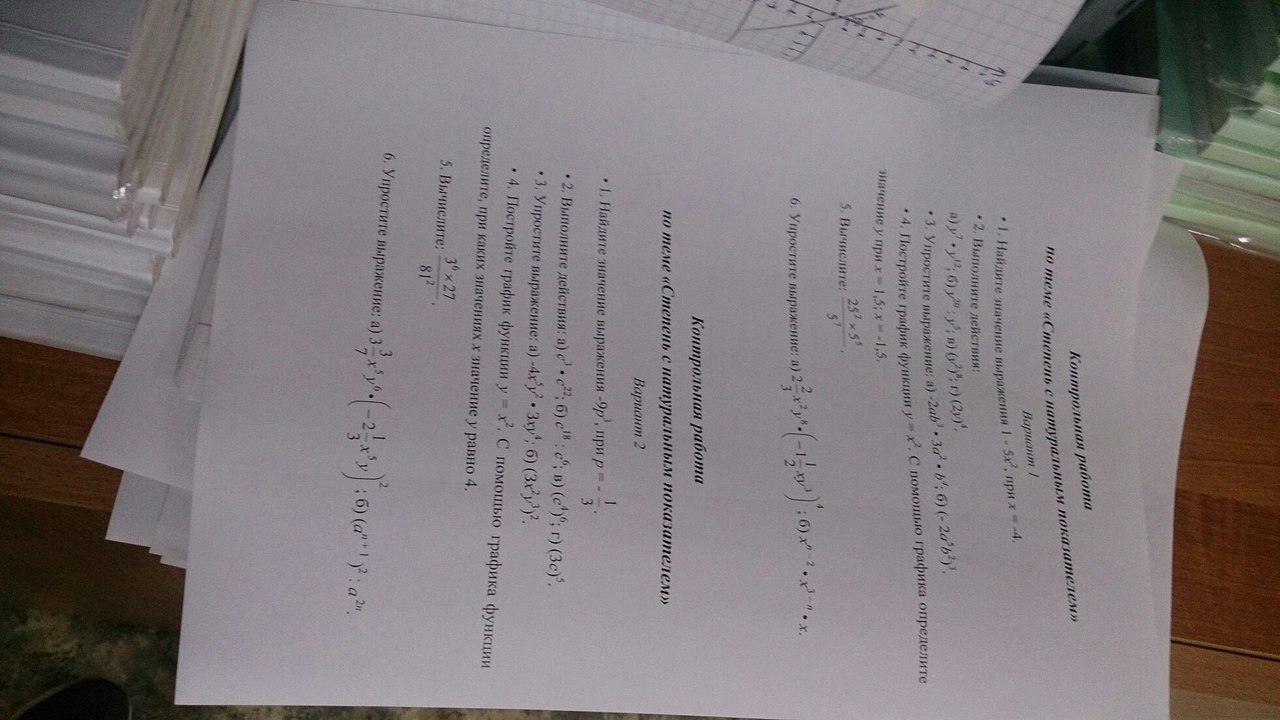 Контрольная работа
по теме «Степень с натуральным показателем»
Вариант 1
• 1. Найдите значение выражения 1 - 5x², при x = -4.
• 2. Выполните действия:
а) y⁷ • y¹²; б) y²⁰ : y⁵; в) (y²)⁸; г) (2y)⁴.
• 3. Упростите выражение: а) -2ab³ • 3a² • b⁴; б) (- 2a⁵b²)³.
• 4. Постройте график функции y = x². С помощью графика определите
значение y при x = 1,5; x = -1,5.
5. Вычислите: (25² × 5⁵)/5⁷.
6. Упростите выражение: а) 2 2/3 x²y⁸ • (-1 1/2 xy³)⁴; б) xⁿ⁻² • x³⁻ⁿ • x.
Контрольная работа
по теме «Степень с натуральным показателем»
Вариант 2
• 1. Найдите значение выражения -9p³, при p = - 1/3.
• 2. Выполните действия: а) c³ • c²²; б) c¹⁸ : c⁶; в) (c⁴)⁶; г) (3c)⁵.
• 3. Упростите выражение: а) -4x⁵y² • 3xy⁴; б) (3x²y³)².
• 4. Постройте график функции y = x². С помощью графика функции
определите, при каких значениях x значение y равно 4.
5. Вычислите: (3⁶ × 27)/81².
6. Упростите выражение: а) 3 3/7 x⁵y⁶ • (-2 1/3 x⁵y)²; б) (aⁿ⁺¹)² : a²ⁿ.